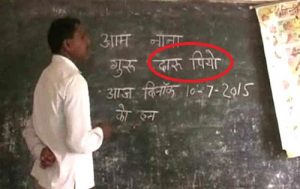 आम नीना
गुरु दारु पियो
आज दिनांक 10-7-2015
को इन